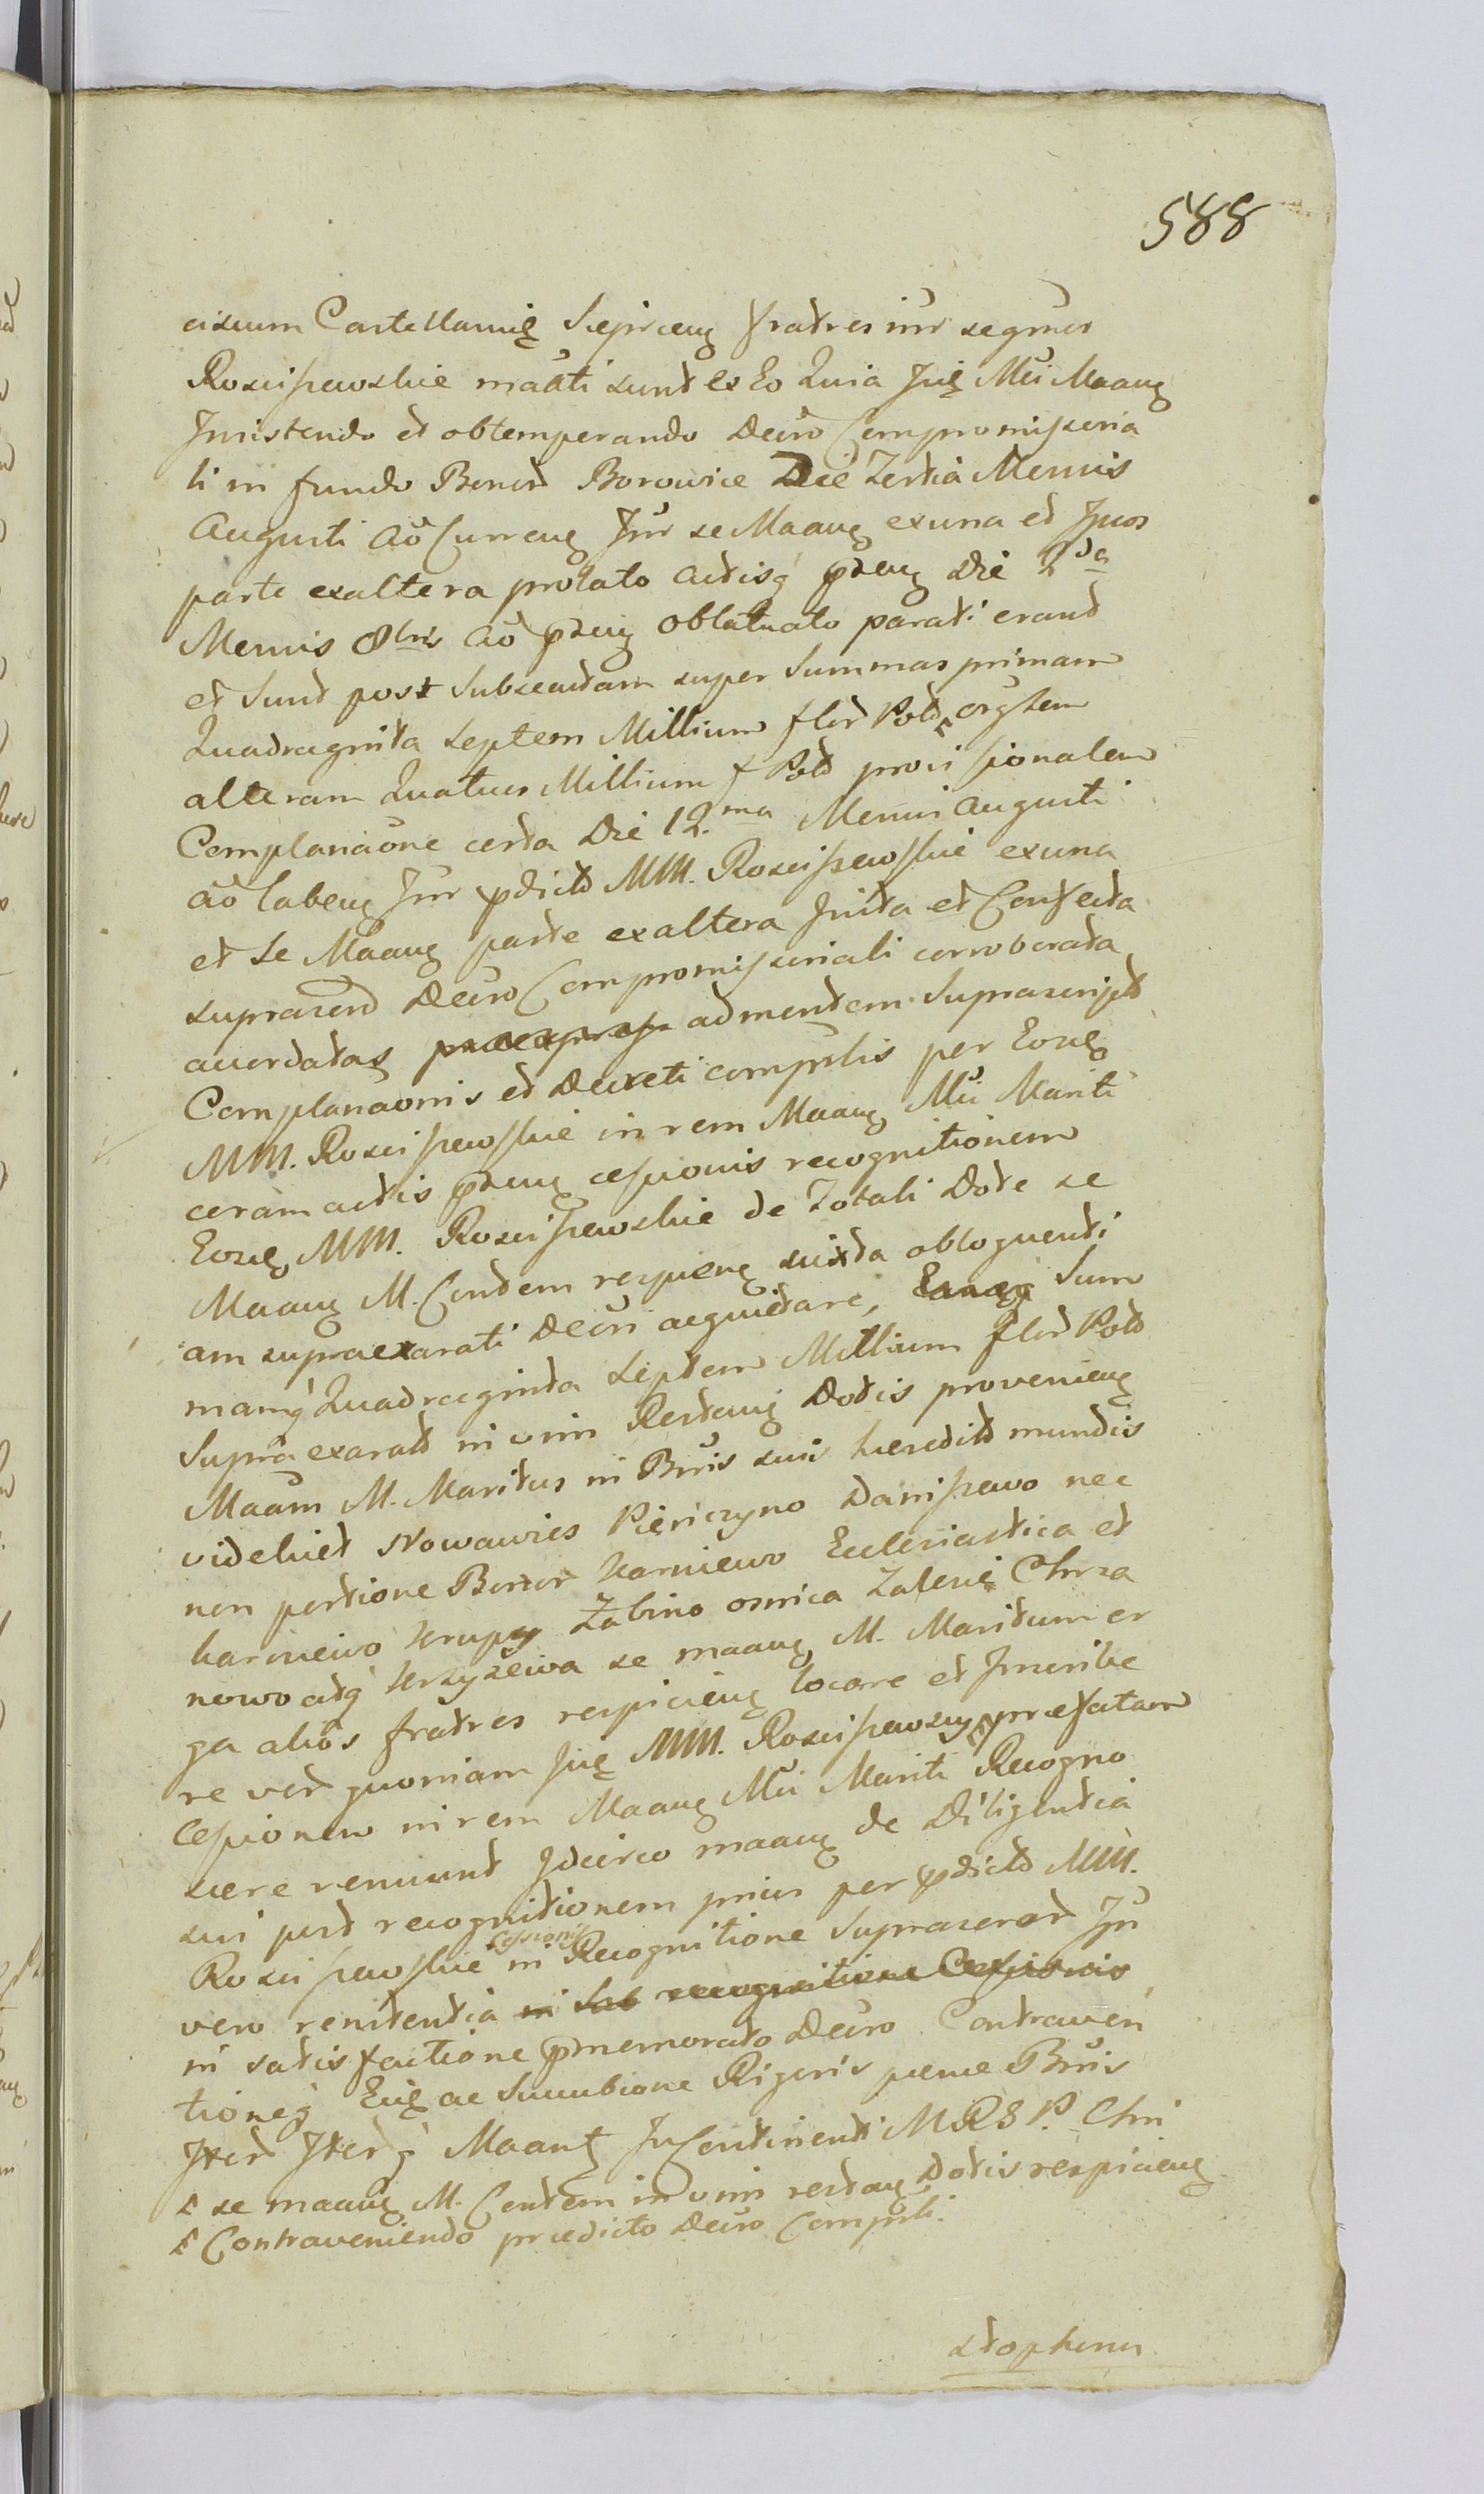 588
cisium Castellanię Sieprceng fratres inr se gmos
Rosciszewskie maăti sunt Ex Eo Quia Juę Mŭi Maang
Insistendo et obtemperando Decro Compromissoria
li in fundo Bonor Borowice Die Tertia Mensis
Augusti Aŏ Curreng Inr se Maang ex una et Juos
parte ex altera prolato Actisq pŭeng Die 2da
Mensis 8bris Aŏ pŭeng Oblatuato parati erant
et Sunt post Subsecutam super Summas primam
Quadraginta Septem Millium flor Pold orgtem
alteram Quatuor Millium f Pold provisionalem
Complanaōne certa Die 12.ma Mensis Augusti
Aŏ labeng Inr pdictd MM. Rosciszewskie ex una
et Se Maang parte ex altera Inita et Confecta
suprascrd Decro Compromissoriali corroborata
accordatas ad mentem Suprascriptd
Complanaonis et Decreti comprolis per Eosdę
MM. Rosciszewskie in rem Maang Mŭi Mariti
coram actis pŭeng cessionis recognitionem
Eosdę MM. Rosciszewskie de Totali Dote se
Maang M. Contem respieng iuxta obloquenti
am supraexarati Decri acquietare, Sum
mamq Quadraginta Septem Millium flor Pold
Supra exaratd in vim Restang Dotis provenieng
Maam M. Maritus in Bnis suis heredită mundis
videlicet Nowawies Pienczyno Daniszewo nec
non portione Bonor Karniewo Ecclesiastica et
karniewo Krupy Zabino osnica Zalesię Chrza
nowo atq Krzyżewa se maang M. Maritum er
ga aliŏs fratres respicieng locare et Inscribe
re verd quoniam Juę MM. Rosciszewscy præfatam
Cessionem in rem Maang Mŭi Mariti Recogno
scere renuunt Idcirco maang de Diligentia
sui post recognitionem prius per pdictd MM.
Rosciszewskie in Cessionis Recognitione Suprascrd In
vero renitentia in Sub recognitione Cessionis
in satisfactione pmemorato Decro Contraven
tioneq Eiię ac Succubione Rigoris pene Bnis
Iterd Iterq Maang In Contineuti MRSP. Chri
se maang M. Contem in vim restang Dotis respicieng
Contraveniendo prædicto Decro Comproli.
stopherus